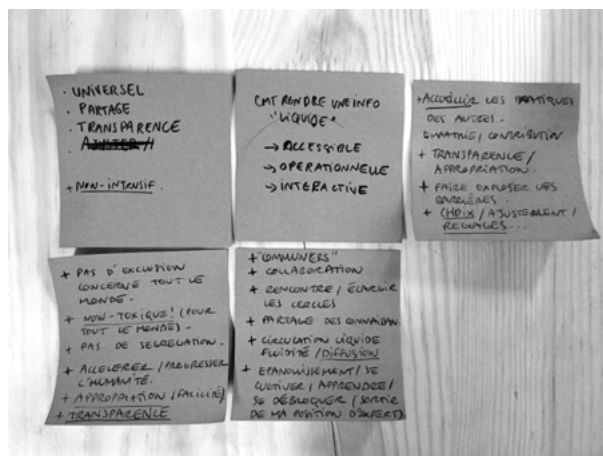 · UNIVERSEL
· PARTAGE
· TRANSPARENCE
· AJUSTER //
+ NON-INTRUSIF.
CMT RENDRE UNE INFO
"LIQUIDE"
→ ACCESSIBLE
→ OPERATIONNELLE
→ INTERACTIVE
+ ACCUEILLIR LES PRATIQUES
DES AUTRES.
EMPATHIE / CONTRIBUTION
+ TRANSPARENCE /
APPROPRIATION.
+ FAIRE EXPLOSER LES
BARRIÈRES.
+ CHOIX / AJUSTEMENT /
REGLAGES...
+ PAS D'EXCLUSION
CONCERNE TOUT LE
MONDE.
+ NON-TOXIQUE! (POUR
TOUT LE MONDE).
+ PAS DE SEGREGATION.
+ ACCELERER / PROGRESSER
L'HUMANITÉ.
+ APPROPRIATION (FACILITÉ)
+ TRANSPARENCE
+ "COMMUNERS"
+ COLLABORATION
+ RENCONTRE / ÉLARGIR
LES CERCLES
+ PARTAGE DES CONNAISSAN
+ CIRCULATION LIQUIDE
FLUIDITÉ / DIFFUSION
+ EPANOUISSEMENT / SE
CULTIVER / APPRENDRE /
SE DÉBLOQUER / (SORTIR
DE MA POSITION D'EXPERT).